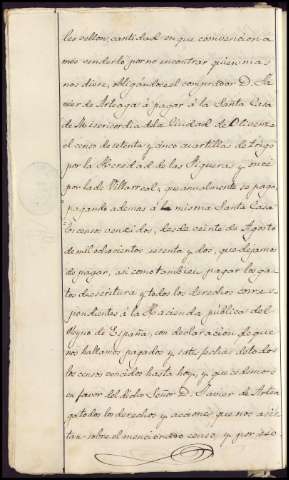 les vellon, cantidad en que convencion a
mos venderlo por no encontrar quien mas
nos diere, obligándose el comprador D. Ja
vier de Arteaga á pagar á la Santa Casa
de Misericordia dela Ciudad de Olivenza
el censo de setenta y cinco cuartillas de trigo
por la Heredad de las Figueras y once
por la de Villarreal, que anualmente se pago
pagando ademas á la misma Santa Casa
los censos vencidos, desde veinte de Agosto
de mil ochocientos sesenta y dos, que dejamos
de pagar, así como tambien pagar los ga
tos de escritura y todos los derechos corres
pondientes á la Hacienda pública del
Reyno de España, con declaracion de que
nos hallamos pagados y satisfechos de todos
los censos vencidos hasta hoy, y que cedemos
en favor del dicho Señor D. Javier de Artea
ga todos los derechos y acciones que nos asis
tan sobre el mencionado censo, y por eso